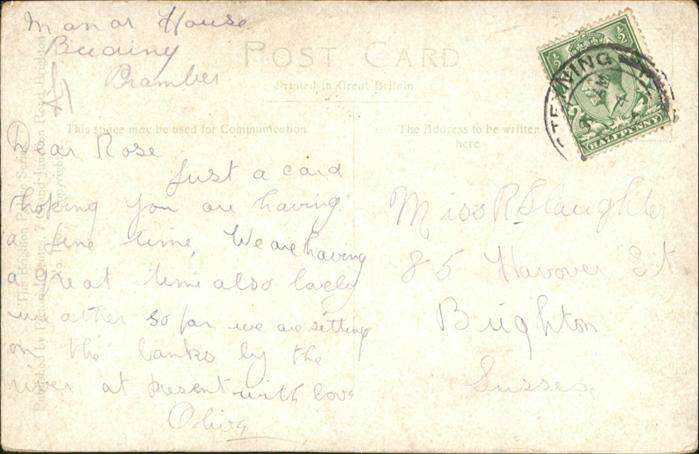 Manor House
Beeding
Bramber
POST CARD
Printed in Great Britain
This space may be used for Communication
The Address to be written
here
Dear Rose
Just a card
hoping you are having
a fine time, We are having
a great time also lovely
weather so far we are sitting
on the banks by the
river at present with love
Olive
Miss R Slaughter
85 Hanover St
Brighton
Sussex
STEYNING
AM
HALFPENNY